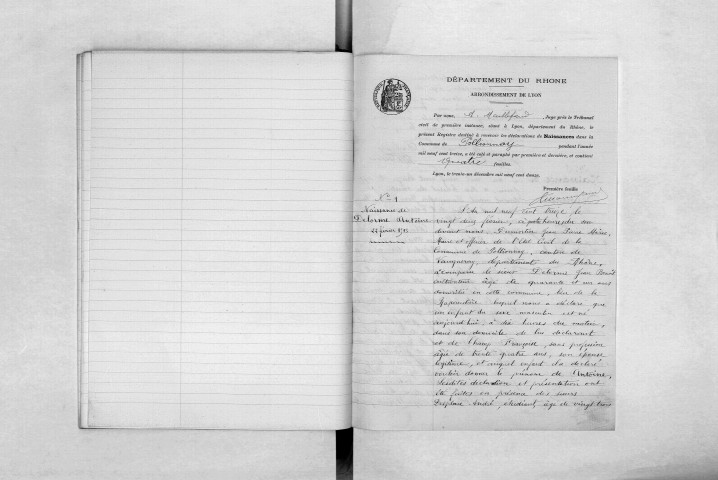 DÉPARTEMENT DU RHONE
ARRONDISSEMENT DE LYON
Par nous, A. Maillefaud, Juge près le Tribunal
civil de première instance, séant à Lyon, département du Rhône,
le présent Registre destiné à recevoir les déclarations de Naissances dans la
Commune de Pollionnay pendant l'année
mil neuf cent treize, a été coté et paraphé par première et dernière, et contient
Quatre feuilles.
Lyon, le trente-un décembre mil neuf cent douze.
Première feuille
N° 1
Naissance de
Delorme Antoine
L'an mil neuf cent treize le
vingt deux février, à quatre heures du soir
devant nous, Dumortier Jean Pierre
Maire et officier de l'Etat Civil de la
Commune de Pollionnay, canton de
Vaugneray, département du Rhône,
a comparu le sieur Delorme Jean Benoît
cultivateur âgé de quarante et un ans
domicilié en cette commune, lieu de la
lequel nous a déclaré que
un enfant du sexe masculin est né
aujourd'hui, à dix heures du matin,
dans son domicile de lui déclarant
et de Françoise, sans profession
âgée de trente quatre ans, son épouse
légitime, et auquel enfant il a déclaré
vouloir donner le prénom de Antoine,
lesdites déclaration et présentation ont
été faites en présence des sieurs
André, étudiant, âgé de vingt trois